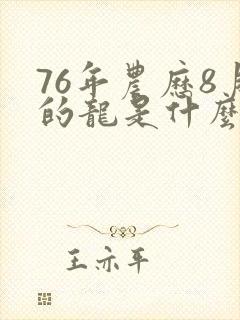 76年農歷8月
的龍是什麼
王亦平